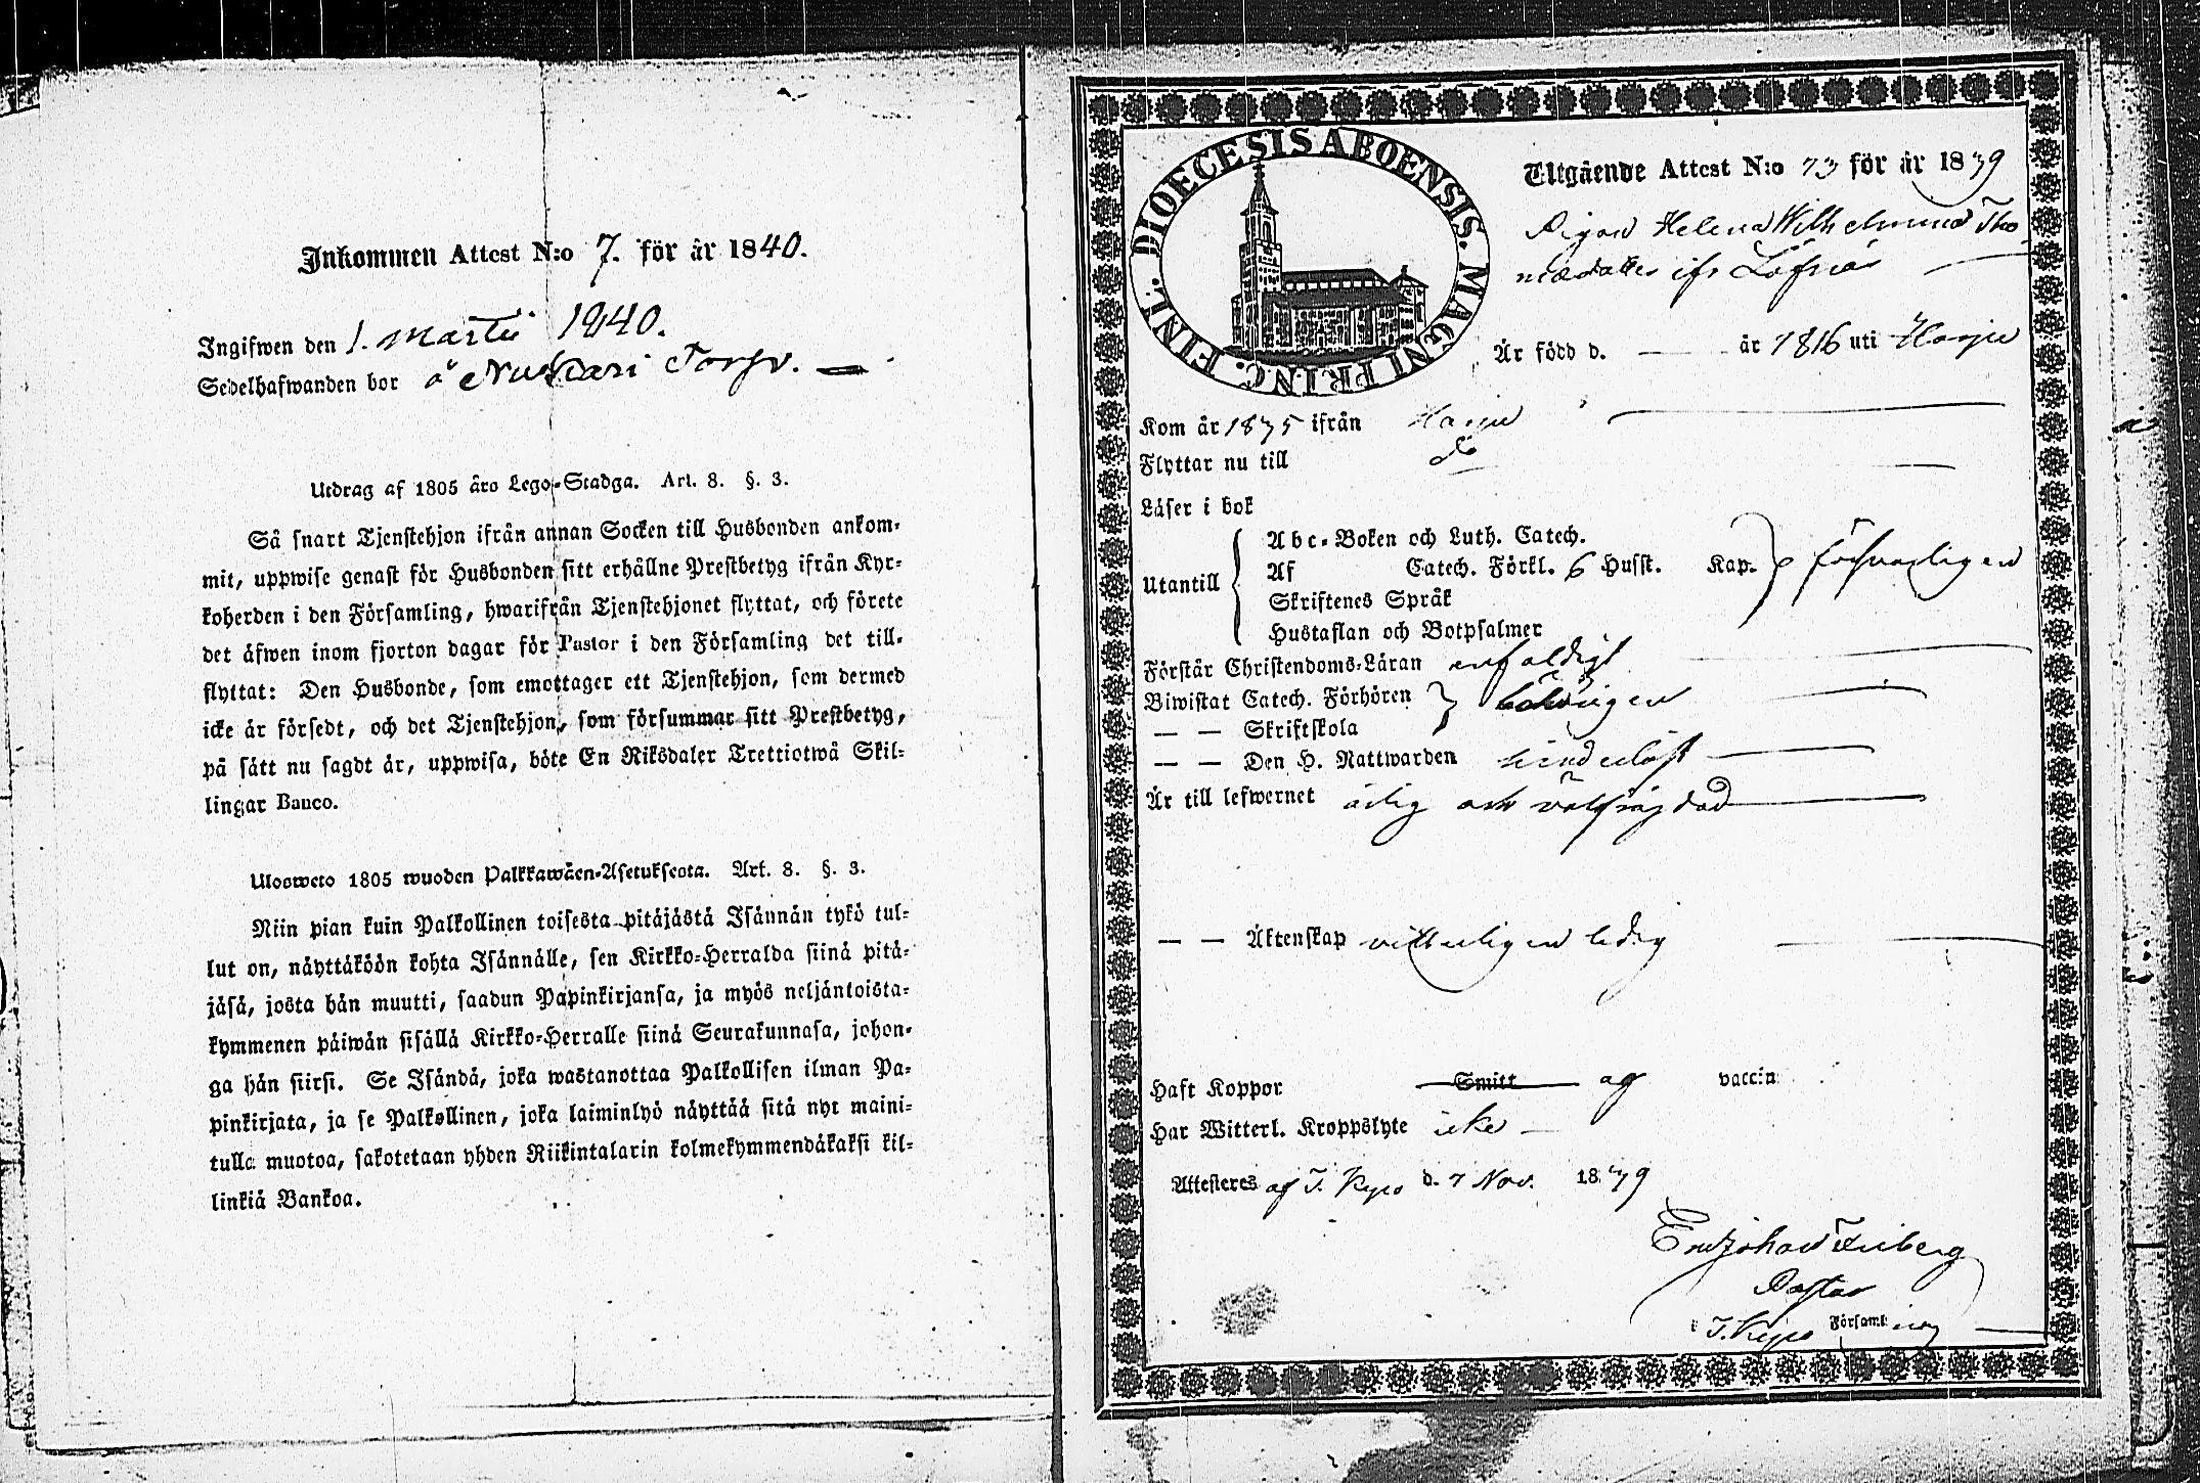 Inkommen Attest N:o 7. för år 1840.
Ingifwen den 1. Martii 1840.
Sedelhafwanden bor å Nuckari Torp.
Utdrag af 1805 års Lego-Stadga. Art. 8. §. 3.
Så snart Tjenstehjon ifrån annan Socken till Husbonden ankom-
mit, uppwise genast för Husbonden sitt erhållne Prestbetyg ifrån Kyr-
koherden i den Församling, hwarifrån Tjenstehjonet flyttat, och förete
det äfwen inom fjorton dagar för Pastor i den Församling det till-
flyttat: Den Husbonde, som emottager ett Tjenstehjon, som dermed
icke är försedt, och det Tjenstehjon, som försummar sitt Prestbetyg,
på sätt nu sagdt är, uppwisa, böte En Riksdaler Trettiotwå Skil-
lingar Banco.
Ulosweto 1805 wuoden Palkkawäen-Asetuksesta. Art. 8. §. 3.
Niin pian kuin Palkollinen toisesta pitäjästä Isännän tykö tul-
lut on, näyttäköön kohta Isännälle, sen Kirkko-Herralda siinä pitä-
jäsä, josta hän muutti, saadun Papinkirjansa, ja myös neljäntoista-
kymmenen päiwän sisällä Kirkko-Herralle siinä Seurakunnasa, johon-
ga hän siirsi. Se Isändä, joka wastanottaa Palkollisen ilman Pa-
pinkirjata, ja se Palkollinen, joka laiminlyö näyttää sitä nyt maini-
tulla muotoa, sakotetaan yhden Riikintalarin kolmekymmendäkaksi kil-
linkiä Bankoa.
DIOECESIS ABOENSIS. MAGNI PRINC. FINL.
Utgående Attest N:o 73 för år 1839
Pigan Helena Wilhelmina Tho
mædotter ifr Löfnäs
Är född d. — år 1816 uti Harju
Kom år 1835 ifrån Harju
Flyttar nu till do
Läser i bok
Utantill
Abc-Boken och Luth. Catech.
Af Catech. Förkl. 6 Husst. Kap. försvarligen
Skriftenes Språk
Hustaflan och Botpsalmer
Förstår Christendoms-Läran enfaldigt
Biwistat Catech. Förhören behörigen
— — Skriftskola
— — Den H. Nattwarden hinderlöst
Är till lefwernet ärlig och välfrejdad
— — Äktenskap vitterligen ledig
Haft Koppor Smitt ag vaccin
Har Witterl. Kroppslyte icke
Attesteres af T. Kyro d. 7 Nov. 1839
Johan Friberg
Pastor
T. Kyro Församling